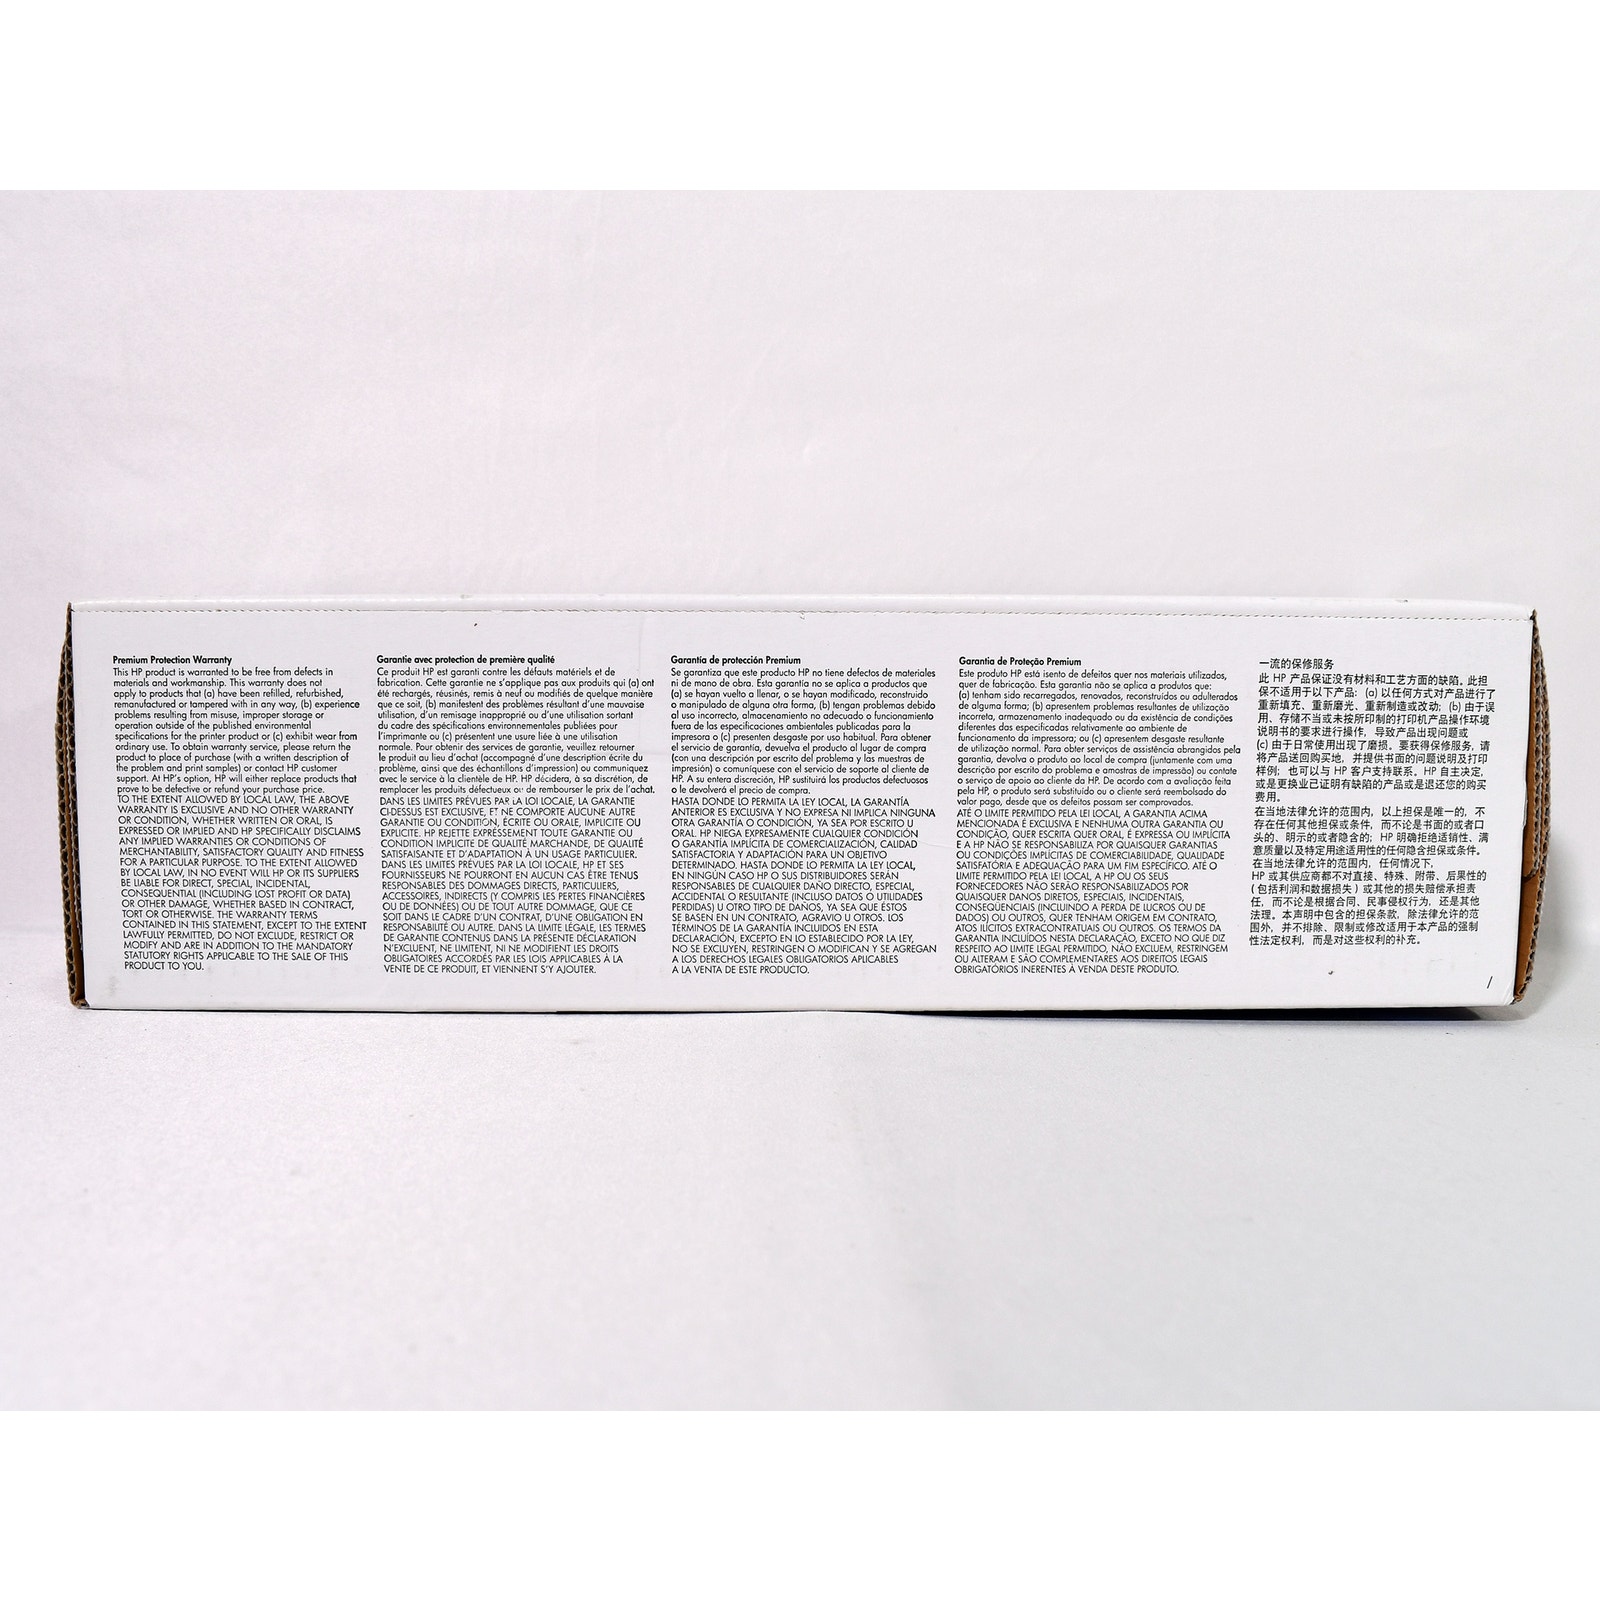 Premium Protection Warranty
This HP product is warranted to be free from defects in
materials and workmanship. This warranty does not
apply to products that (a) have been refilled, refurbished,
remanufactured or tampered with in any way, (b) experience
problems resulting from misuse, improper storage or
operation outside of the published environmental
specifications for the printer product or (c) exhibit wear from
ordinary use. To obtain warranty service, please return the
product to place of purchase (with a written description of
the problem and print samples) or contact HP customer
support. At HP's option, HP will either replace products that
prove to be defective or refund your purchase price.
TO THE EXTENT ALLOWED BY LOCAL LAW, THE ABOVE
WARRANTY IS EXCLUSIVE AND NO OTHER WARRANTY
OR CONDITION, WHETHER WRITTEN OR ORAL, IS
EXPRESSED OR IMPLIED AND HP SPECIFICALLY DISCLAIMS
ANY IMPLIED WARRANTIES OR CONDITIONS OF
MERCHANTABILITY, SATISFACTORY QUALITY AND FITNESS
FOR A PARTICULAR PURPOSE. TO THE EXTENT ALLOWED
BY LOCAL LAW, IN NO EVENT WILL HP OR ITS SUPPLIERS
BE LIABLE FOR DIRECT, SPECIAL, INCIDENTAL,
CONSEQUENTIAL (INCLUDING LOST PROFIT OR DATA)
OR OTHER DAMAGE, WHETHER BASED IN CONTRACT,
TORT OR OTHERWISE. THE WARRANTY TERMS
CONTAINED IN THIS STATEMENT, EXCEPT TO THE EXTENT
LAWFULLY PERMITTED, DO NOT EXCLUDE, RESTRICT OR
MODIFY AND ARE IN ADDITION TO THE MANDATORY
STATUTORY RIGHTS APPLICABLE TO THE SALE OF THIS
PRODUCT TO YOU.
Garantie avec protection de première qualité
Ce produit HP est garanti contre les défauts matériels et de
fabrication. Cette garantie ne s'applique pas aux produits qui (a) ont
été rechargés, réusinés, remis à neuf ou modifiés de quelque manière
que ce soit, (b) manifestent des problèmes résultant d'une mauvaise
utilisation, d'un remisage inapproprié ou d'une utilisation sortant
du cadre des spécifications environnementales publiées pour
l'imprimante ou (c) présentent une usure liée à une utilisation
normale. Pour obtenir des services de garantie, veuillez retourner
le produit au lieu d'achat (accompagné d'une description écrite du
problème, ainsi que des échantillons d'impression) ou communiquez
avec le service à la clientèle de HP. HP décidera, à sa discrétion, de
remplacer les produits défectueux ou de rembourser le prix de l'achat.
DANS LES LIMITES PRÉVUES PAR LA LOI LOCALE, LA GARANTIE
CI-DESSUS EST EXCLUSIVE, ET NE COMPORTE AUCUNE AUTRE
GARANTIE OU CONDITION, ÉCRITE OU ORALE, IMPLICITE OU
EXPLICITE. HP REJETTE EXPRESSÉMENT TOUTE GARANTIE OU
CONDITION IMPLICITE DE QUALITÉ MARCHANDE, DE QUALITÉ
SATISFAISANTE ET D'ADAPTATION À UN USAGE PARTICULIER.
DANS LES LIMITES PRÉVUES PAR LA LOI LOCALE, HP ET SES
FOURNISSEURS NE POURRONT EN AUCUN CAS ÊTRE TENUS
RESPONSABLES DES DOMMAGES DIRECTS, PARTICULIERS,
ACCESSOIRES, INDIRECTS (Y COMPRIS LES PERTES FINANCIÈRES
OU DE DONNÉES) OU DE TOUT AUTRE DOMMAGE, QUE CE
SOIT DANS LE CADRE D'UN CONTRAT, D'UNE OBLIGATION EN
RESPONSABILITÉ OU AUTRE. DANS LA LIMITE LÉGALE, LES TERMES
DE GARANTIE CONTENUS DANS LA PRÉSENTE DÉCLARATION
N'EXCLUENT, NE LIMITENT, NI NE MODIFIENT LES DROITS
OBLIGATOIRES ACCORDÉS PAR LES LOIS APPLICABLES À LA
VENTE DE CE PRODUIT, ET VIENNENT S'Y AJOUTER.
Garantía de protección Premium
Se garantiza que este producto HP no tiene defectos de materiales
ni de mano de obra. Esta garantía no se aplica a productos que
(a) se hayan vuelto a llenar, o se hayan modificado, reconstruido
o manipulado de alguna otra forma, (b) tengan problemas debido
al uso incorrecto, almacenamiento no adecuado o funcionamiento
fuera de las especificaciones ambientales publicadas para la
impresora o (c) presenten desgaste por uso habitual. Para obtener
el servicio de garantía, devuelva el producto al lugar de compra
(con una descripción por escrito del problema y las muestras de
impresión) o comuníquese con el servicio de soporte al cliente de
HP. A su entera discreción, HP sustituirá los productos defectuosos
o le devolverá el precio de compra.
HASTA DONDE LO PERMITA LA LEY LOCAL, LA GARANTÍA
ANTERIOR ES EXCLUSIVA Y NO EXPRESA NI IMPLICA NINGUNA
OTRA GARANTÍA O CONDICIÓN, YA SEA POR ESCRITO U
ORAL. HP NIEGA EXPRESAMENTE CUALQUIER CONDICIÓN
O GARANTÍA IMPLÍCITA DE COMERCIALIZACIÓN, CALIDAD
SATISFACTORIA Y ADAPTACIÓN PARA UN OBJETIVO
DETERMINADO. HASTA DONDE LO PERMITA LA LEY LOCAL,
EN NINGÚN CASO HP O SUS DISTRIBUIDORES SERÁN
RESPONSABLES DE CUALQUIER DAÑO DIRECTO, ESPECIAL,
ACCIDENTAL O RESULTANTE (INCLUSO DATOS O UTILIDADES
PERDIDAS) U OTRO TIPO DE DAÑOS, YA SEA QUE ÉSTOS
SE BASEN EN UN CONTRATO, AGRAVIO U OTROS. LOS
TÉRMINOS DE LA GARANTÍA INCLUIDOS EN ESTA
DECLARACIÓN, EXCEPTO EN LO ESTABLECIDO POR LA LEY,
NO SE EXCLUYEN, RESTRINGEN O MODIFICAN Y SE AGREGAN
A LOS DERECHOS LEGALES OBLIGATORIOS APLICABLES
A LA VENTA DE ESTE PRODUCTO.
Garantia de Proteção Premium
Este produto HP está isento de defeitos quer nos materiais utilizados,
quer de fabricação. Esta garantia não se aplica a produtos que:
(a) tenham sido recarregados, renovados, reconstruídos ou adulterados
de alguma forma; (b) apresentem problemas resultantes de utilização
incorreta, armazenamento inadequado ou da existência de condições
diferentes das especificadas relativamente ao ambiente de
funcionamento da impressora; ou (c) apresentem desgaste resultante
de utilização normal. Para obter serviços de assistência abrangidos pela
garantia, devolva o produto ao local de compra (juntamente com uma
descrição por escrito do problema e amostras de impressão) ou contate
o serviço de apoio ao cliente da HP. De acordo com a avaliação feita
pela HP, o produto será substituído ou o cliente será reembolsado do
valor pago, desde que os defeitos possam ser comprovados.
ATÉ O LIMITE PERMITIDO PELA LEI LOCAL, A GARANTIA ACIMA
MENCIONADA É EXCLUSIVA E NENHUMA OUTRA GARANTIA OU
CONDIÇÃO, QUER ESCRITA QUER ORAL, É EXPRESSA OU IMPLÍCITA
E A HP NÃO SE RESPONSABILIZA POR QUAISQUER GARANTIAS
OU CONDIÇÕES IMPLÍCITAS DE COMERCIABILIDADE, QUALIDADE
SATISFATÓRIA E ADEQUAÇÃO PARA UM FIM ESPECÍFICO. ATÉ O
LIMITE PERMITIDO PELA LEI LOCAL, A HP OU OS SEUS
FORNECEDORES NÃO SERÃO RESPONSABILIZADOS POR
QUAISQUER DANOS DIRETOS, ESPECIAIS, INCIDENTAIS,
CONSEQÜENCIAIS (INCLUINDO A PERDA DE LUCROS OU DE
DADOS) OU OUTROS, QUER TENHAM ORIGEM EM CONTRATO,
ATOS ILÍCITOS EXTRACONTRATUAIS OU OUTROS. OS TERMOS DA
GARANTIA INCLUÍDOS NESTA DECLARAÇÃO, EXCETO NO QUE DIZ
RESPEITO AO LIMITE LEGAL PERMITIDO, NÃO EXCLUEM, RESTRINGEM
OU ALTERAM E SÃO COMPLEMENTARES AOS DIREITOS LEGAIS
OBRIGATÓRIOS INERENTES À VENDA DESTE PRODUTO.
一流的保修服务
此 HP 产品保证没有材料和工艺方面的缺陷。此担
保不适用于以下产品: (a) 以任何方式对产品进行了
重新填充、重新磨光、重新制造或改动; (b) 由于误
用、存储不当或未按所印制的打印机产品操作环境
说明书的要求进行操作, 导致产品出现问题或
(c) 由于日常使用出现了磨损。要获得保修服务, 请
将产品送回购买地, 并提供书面的问题说明及打印
样例; 也可以与 HP 客户支持联系。HP 自主决定,
或是更换业已证明有缺陷的产品或是退还您的购买
费用。
在当地法律允许的范围内, 以上担保是唯一的, 不
存在任何其他担保或条件, 而不论是书面的或者口
头的、明示的或者隐含的; HP 明确拒绝适销性、满
意质量以及特定用途适用性的任何隐含担保或条件。
在当地法律允许的范围内, 任何情况下,
HP 或其供应商都不对直接、特殊、附带、后果性的
(包括利润和数据损失) 或其他的损失赔偿承担责
任, 而不论是根据合同、民事侵权行为, 还是其他
法理。本声明中包含的担保条款, 除法律允许的范
围外, 并不排除、限制或修改适用于本产品的强制
性法定权利, 而是对这些权利的补充。
/